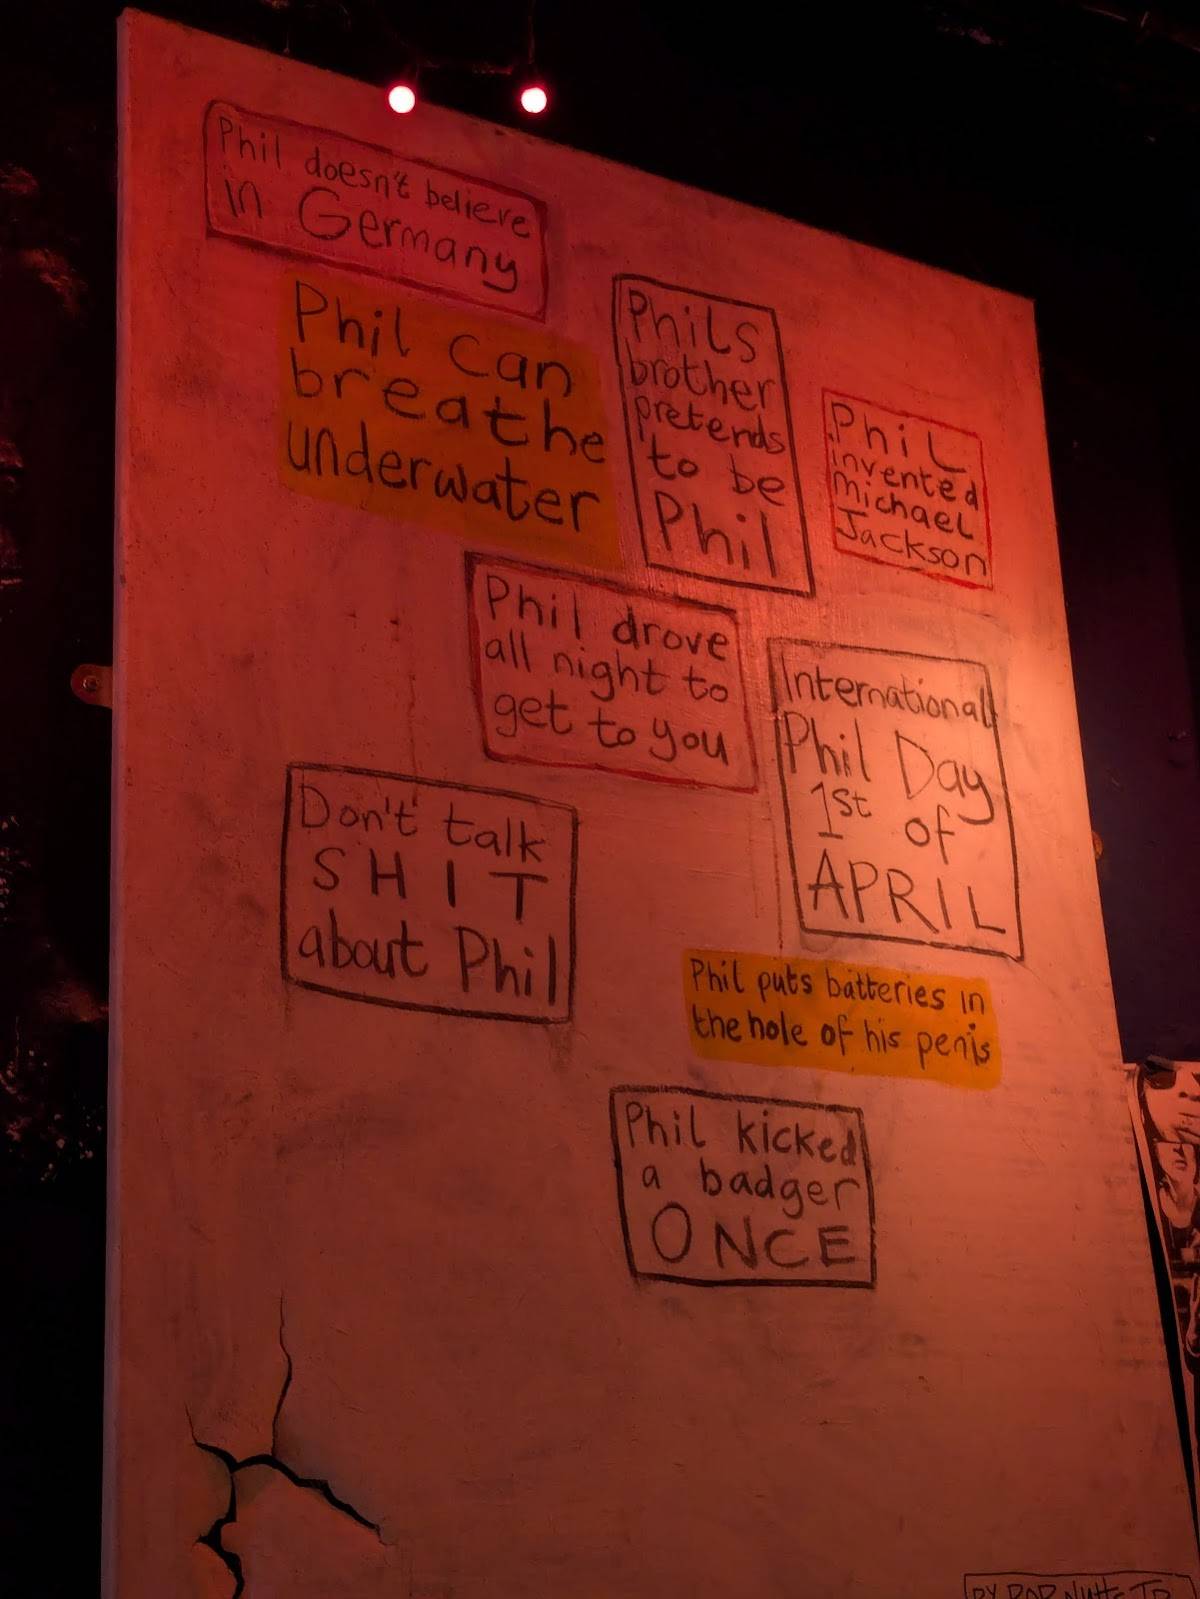 Phil doesn't believe
in Germany
Phil can
breathe
underwater
PhiLS
brother
pretends
to be
Phil
PhiL
invented
michael
Jackson
Phil drove
all night to
get to you
International
Phil Day
1st of
APRIL
Don't talk
SHIT
about Phil
Phil puts batteries in
the hole of his penis
Phil kicked
a badger
ONCE
BY